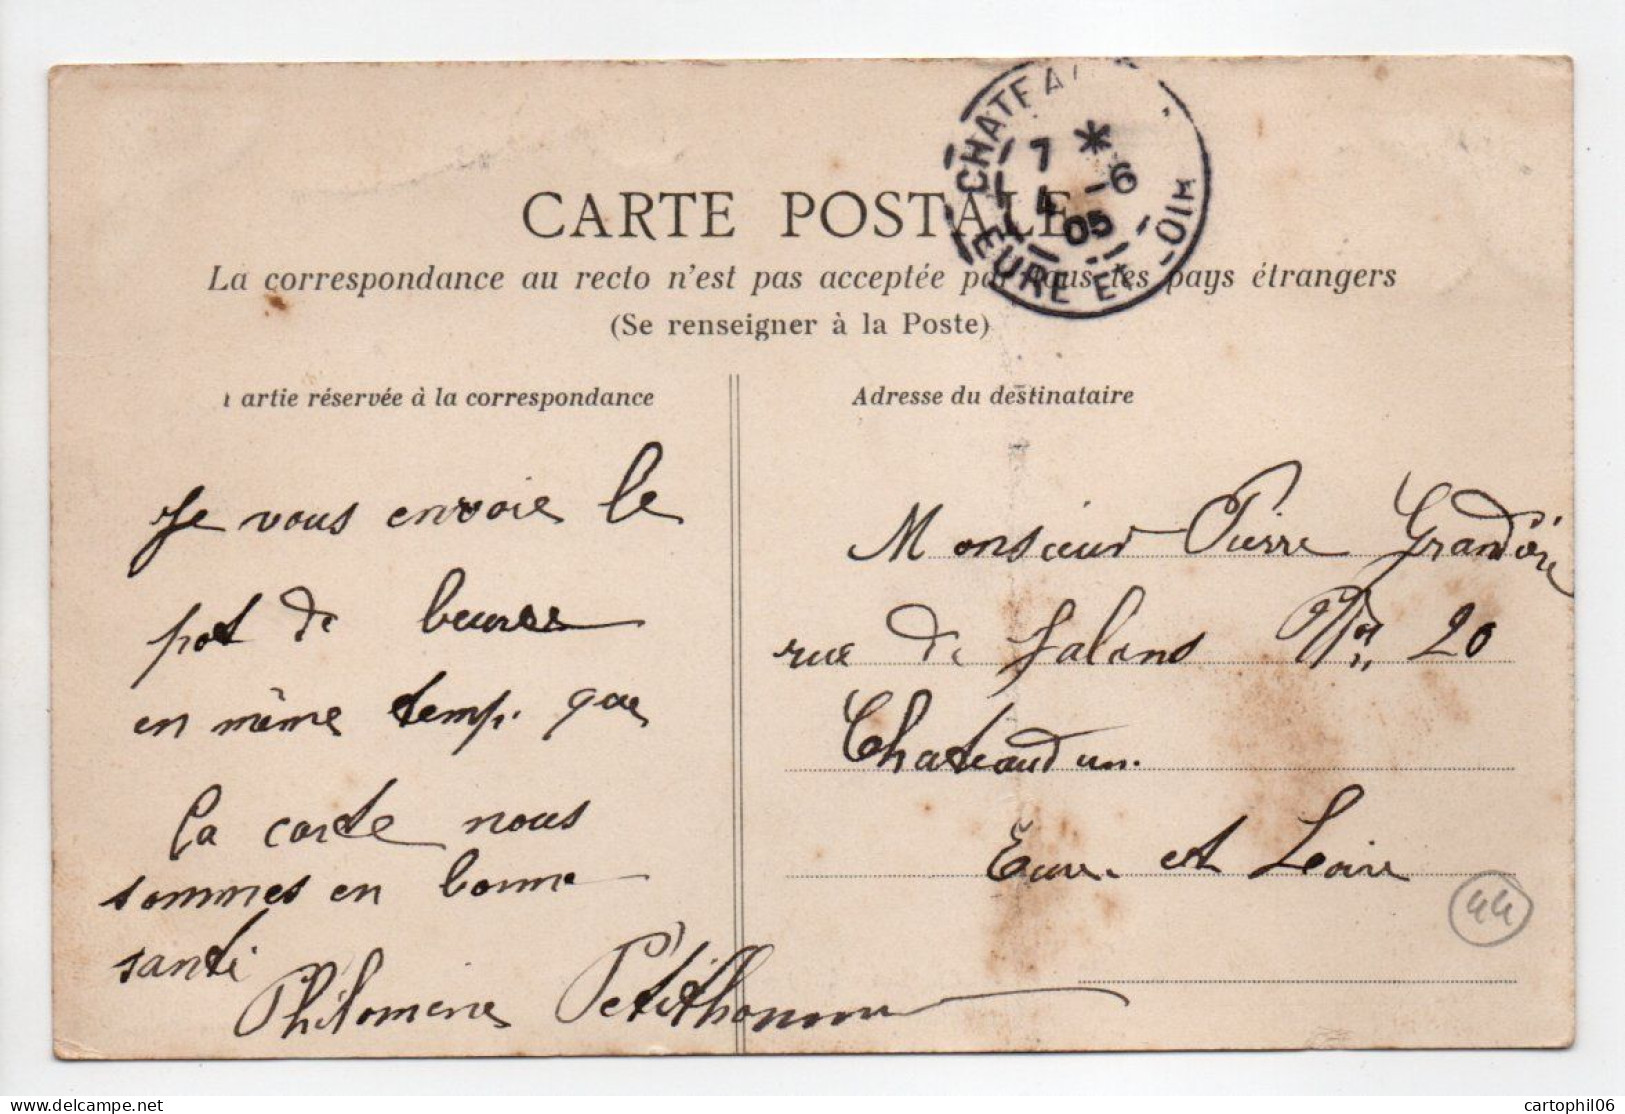 CARTE POSTALE
La correspondance au recto n'est pas acceptée par tous les pays étrangers
(Se renseigner à la Poste)
CHATEA
7 * 4 -6 05
EURE ET -LOIR
artie réservée à la correspondance
Adresse du destinataire
Je vous envoie le
pot de beurre
en même temp. que
la carte nous
sommes en bonne
santé
Philomene Petithomme
Monsieur Pierre Grandière
rue de Jalans No 20
Chateaudun.
Eure. et Loire
44
cartophil06